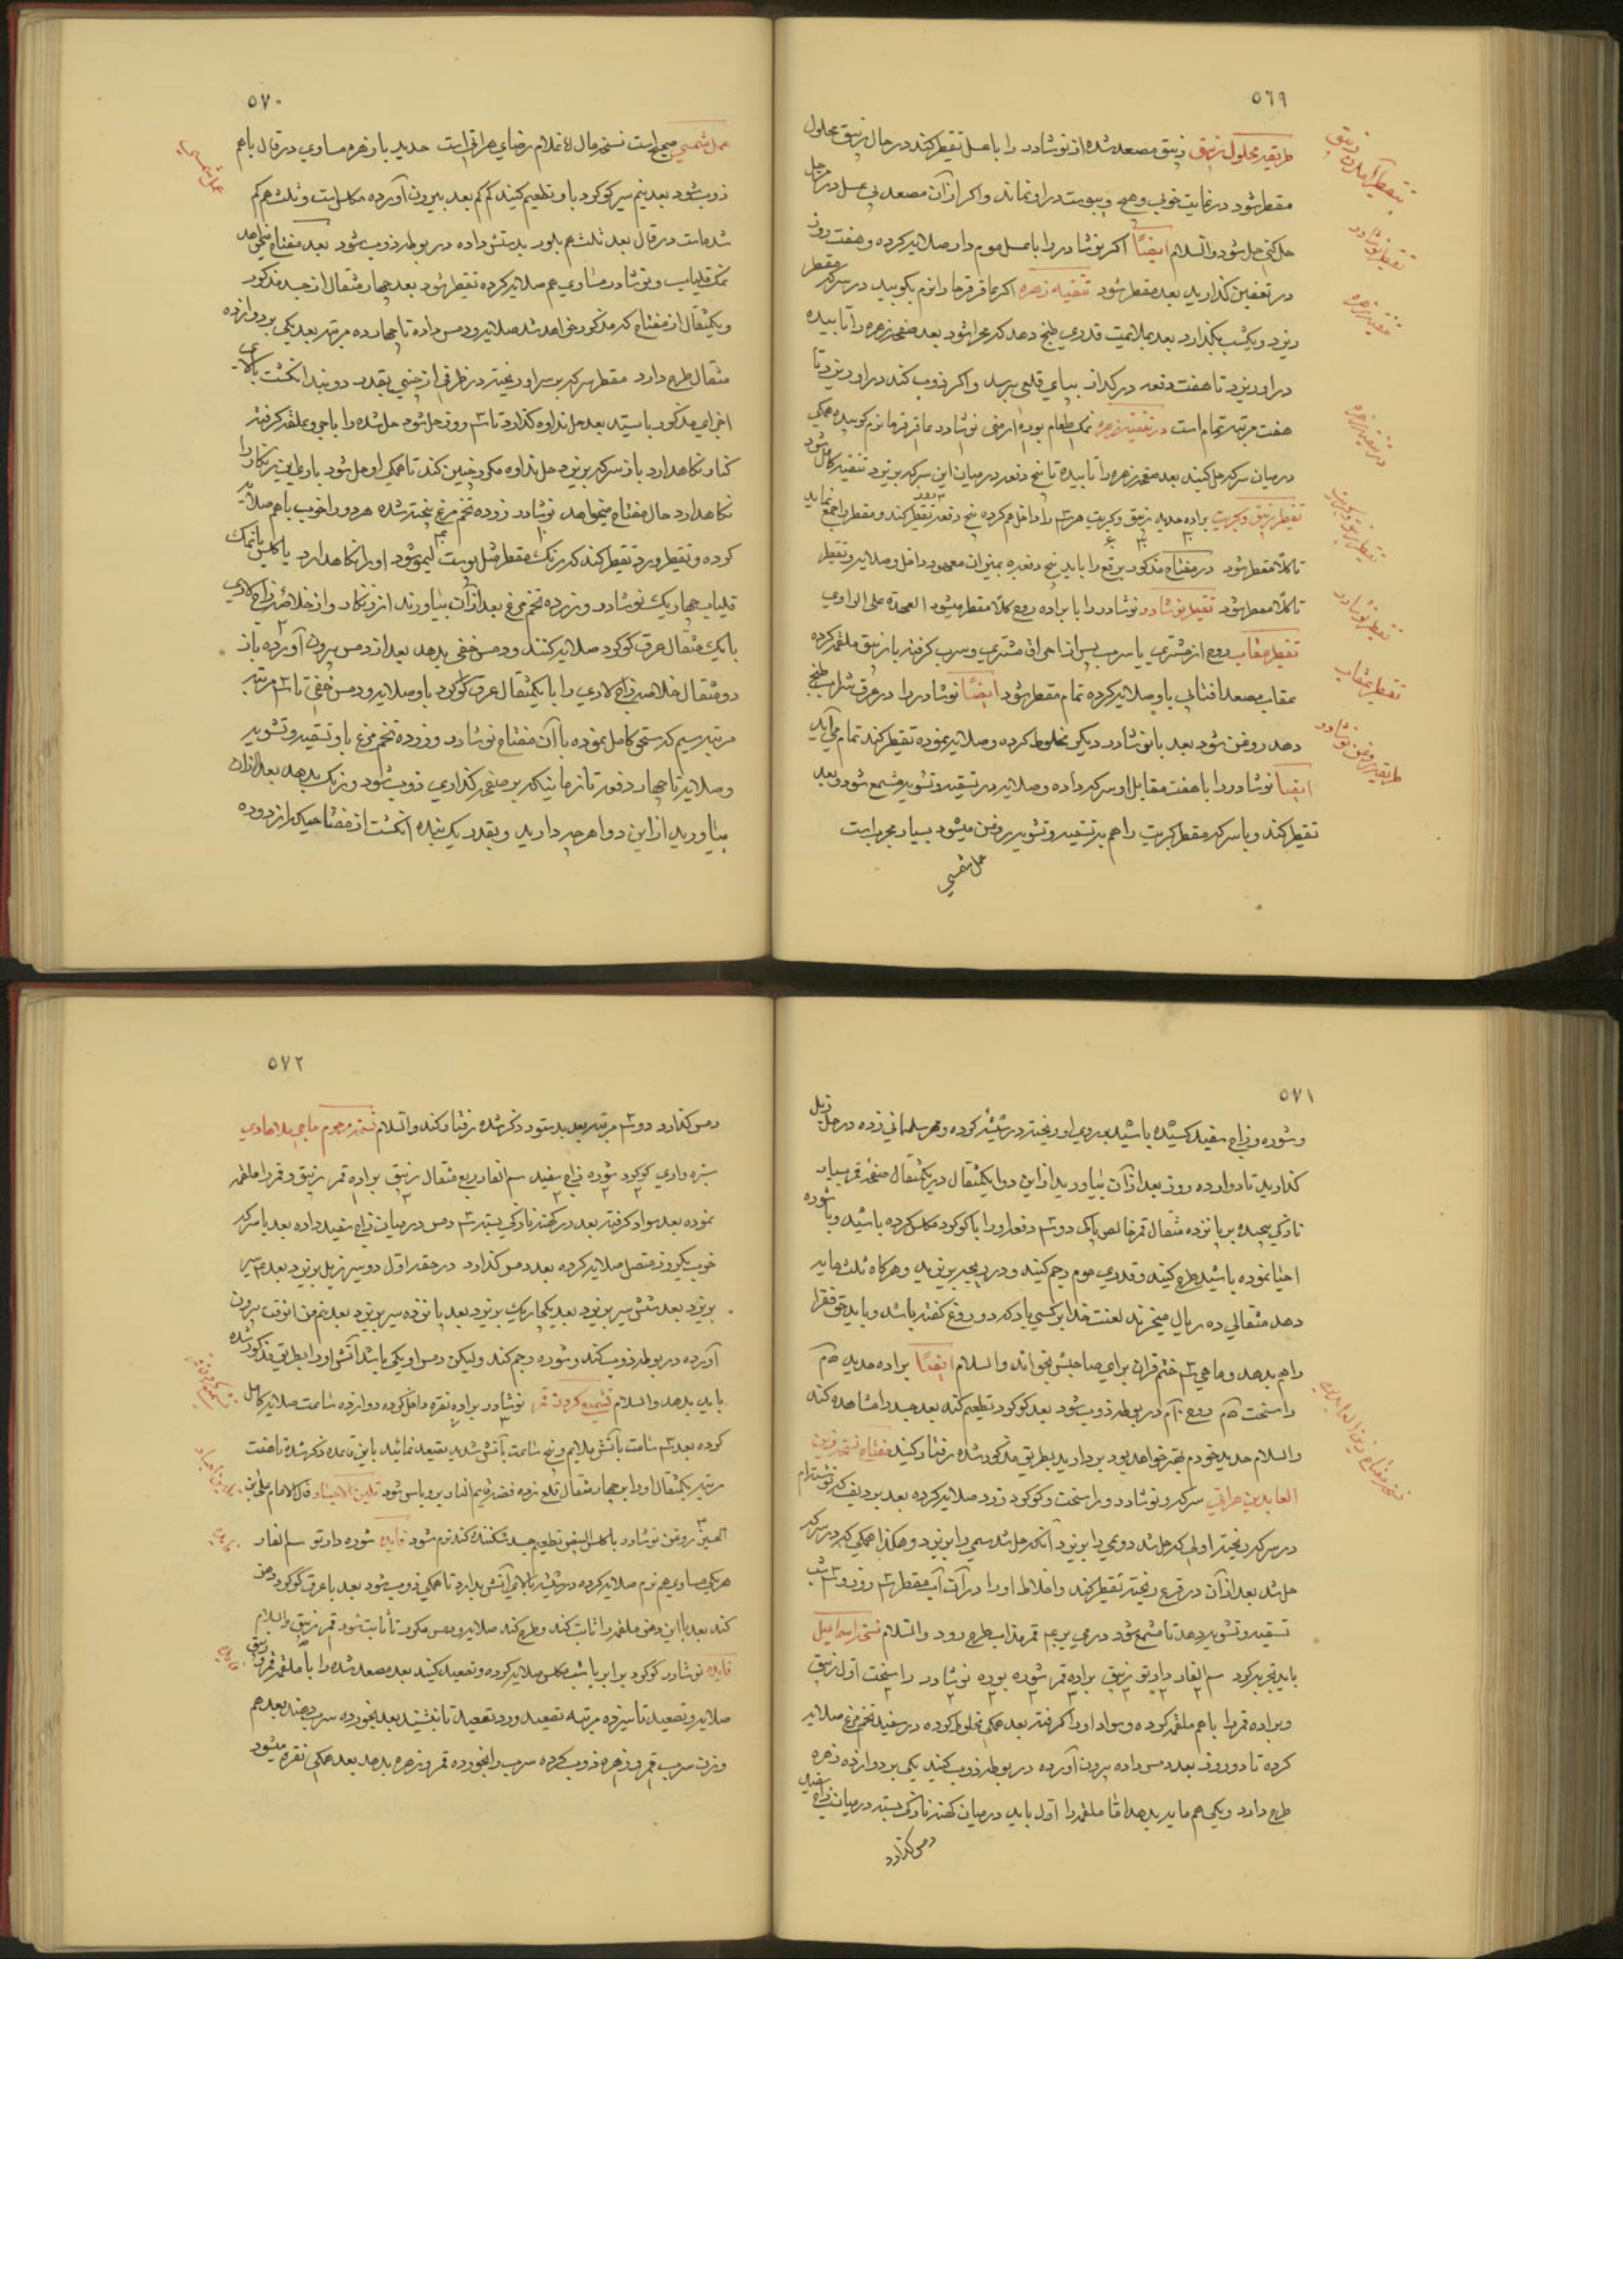 ٥٦٩
طریقه محلول زیبق زیبق مصعد شده از نوشادر را با عسل تقطیر کنند در حال زیبق محلول
مقطر شود در نهایت خوبی و هیچ یبوست در او نماند و اکر از آن مصعد بی عسل در حل
حل کنی حل شود والسلام ایضاً اکر نوشادر را با عسل موم دار صلایه کرده و هفت روز
در تعفین کذارید بعد مقطر شود تنقیه زهره اکر عاقرقرحا را نرم بکوبید در سرکه مقطر
ریزد و یکشب بکذارد بعد بملایمت قدری طبخ دهد که مجرا شود بعد صفحه زهره را تابیده
در او ریزد تا هفت دفعه در کداز بپای قلعی برسد و اکر ذوب کند در او ریزد تا
هفت مرتبه تمام است در تنقیه زهره نمک طعام بوره ارمنی نوشادر عاقرقرحا نرم کوبیده همکی
در میان سرکه حل کنید بعد صفحه زهره را تابیده تا پنج دفعه در میان این سرکه بریزد تنقیه کامل شود
تقطیر زیبق و کبریت براده حدید زیبق و کبریت هر سه را داخل هم کرده پنج دفعه تقطیر کند و مقطر را جمع نماید
تا کلاً مقطر شود در مفتاح مذکور برقع را باید پنج دفعه بمیزان معهود داخل و صلایه و تقطیر
تا کلاً مقطر شود تقطیر نوشادر نوشادر را با براده روح کلاً مقطر میشود العهدة علی الراوی
تقطیر عقاب روح از مشتری یا سرب پس از احراق مشتری و سرب کرفته با زیبق ملغمه کرده
عقاب مصعد افتابی با او صلایه کرده تمام مقطر شود ایضاً نوشادر را در عرق شراب طبخ
دهد روغن شود بعد با نوشادر دیکر مخلوط کرده و صلایه نموده تقطیر کند تمام می آید
ایضا نوشادر را با هفت مقابل او سرکه داده و صلایه در تسقیه و تشویه مشمع شود و بعد
تقطیر کند و با سرکه مقطر کبریت را هم به تسقیه و تشویه روغن میشود بسیار مجرب است
عمل شمسی
تقطیر نوشادر
تنقیه زهره
در تنقیه زهره
تقطیر زیبق و کبریت
تقطیر نوشادر
تقطیر عقاب
طریقه روغن نوشادر
٥٧٠
عمل شمسی صحیح است نسخه مال غلام رضای هراتی است حدید با زهره مساوی در قال باهم
ذوب شود بعد نیم سیر کوکرد با و تطعیم کنید کم کم بعد بیرون آورده مکلس است و ثلث هم کم
شده است در قال بعد ثلث هم بلور بدستش داده در بوطه ذوب شود بعد مفتاح میخواهد
نمک قلیاب و نوشادر مساوی هم صلایه کرده تقطیر شود بعد چهار مثقال از جسد مذکور
و یکمثقال از مفتاح که مذکور خواهد شد صلایه و دمس داده تا چهارده مرتبه بعد یکی بر دوازده
مثقال طرح دارد مقطر سرکه بر سر او ریخته در ظرفی از چینی بقدر دو بند انکشت بالای
اجزای مذکور بایستد بعد حل نداوه کذارد تا سه روز حل شود حل شده را باجی و علقه کرفته
کنار نکاهدارد باز سرکه بریزد حل نداوه مکرر چنین کند تا همکی او حل شود
نکاهدارد حال مفتاح میخواهد نوشادر زرده تخم مرغ پخته شده هر دو را خوب باهم صلایه
کرده و تقطیر و رد تقطیر کند که رنک مقطر مثل پوست لیمو شود او را نکاهدارد یا کلس یا نمک
قلیاب چهار یک نوشادر و زرده تخم مرغ بعد از آن بیاورند از زنکار و از خلاصه زاج لادی
با یک مثقال عرق کوکرد صلایه کنند و دمس خفی بدهد بعد از دمس بیرون آورده باز
دو مثقال خلاصه زاج لادی را با یکمثقال عرق کوکرد با و صلایه و دمس خفی تا سه مرتبه
مرتبه سیم که ستحق کامل نموده با آن مفتاح نوشادر و زرده تخم مرغ با و تسقیه و تشویه
و صلایه تا چهارده دفعه تا زمانیکه بر صفحه کذاری ذوب شود و رنک بدهد بعد از آن
بیاورید از این دوا هر چه دارید و بقدر یک بنده انکشت از مفتاحیکه از زرده
عمل شمسی
٥٧١
و شوره و زاج سفید کسیده باشید بر روی او ریخته در شیشه کرده و مهر سلمانی زده در حل زبل
کذارید تا دوازده روز بعد از آن بیاورید از این دوا یکمثقال در یکمثقال صفحه قمر بسیار
نازکی پیچیده بر پانزده مثقال قمر خالص پاک دو سه دفعه او را با کوکرد مکلس کرده باشید و با شوره
احیا نموده باشید طرح کنید و قدری موم رجم کنید و در ریجه بریزید و هر کاه ثلث ماید
دهد مثقالی ده ریال میخرند لعنت خدا بر کسی باد که دروغ کفته باشد و باید حق فقرا
را هم بدهد و ماهی سه ختم قرآن برای صاحبش بخواند والسلام ایضاً براده حدید
راسخت روح در بوطه ذوب شود بعد کوکرد تطعیم کند بعد جسد را مشاهده کند
والسلام حدید خودم بهتر خواهد بود بردارید بطریق مذکور شده رفتار کنید مفتاح نسخه زین
العابدین هراتی سرکه و نوشادر و راسخت و کوکرد زرد صلایه کرده بعد
در سرکه ریخته اولی که حل شد دومی را بریزد آنکه حل شد سیمی را بریزد و هکذا همکی که در سرکه
حل شد بعد از آن در قرع ریخته تقطیر کند و اخلاط او را در آن آب مقطر سه روز و سه شب
تسقیه و تشویه دهد تا مشمع شود در می بریم قمر مذاب طرح رود والسلام نسخه اسماعیل
باید تجربه کرد سم الفار دارتو زیبق براده قمر شوره بوره نوشادر راسخت اول زیبق
و براده قمر را باهم ملغمه کرده و سواد او را کرفته بعد همکی مخلوط کرده در سفیده تخم مرغ صلایه
کرده تا دو روز بعد دمس داده بیرون آورده در بوطه ذوب کنید یکی بر دوازده زهره
طرح دارد و یکی هم ماید بدهد اما ملغمه را اول باید در میان کهنه نازکی بسته در میان زاج سفید
دمس کذارد
نسخه مفتاح زین العابدین
٥٧٢
دمس کذارد دو سه مرتبه بعد بدستور ذکر شده رفتار کند والسلام نسخه مرحوم حاجی ملا هادی
سبزه واری کوکرد شوره زاج سفید سم الفار ربع مثقال زیبق براده قمر زیبق و قمر را ملغمه
نموده بعد سواد کرفته بعد در کهنه نازکی بسته سه دمس در میان زاج سفید داده بعد با سرکه
خوب یکروز متصل صلایه کرده بعد دمس کذارد در حقه اول دو سیر زبل بریزد بعد سیر
بریزد بعد شش سیر بریزد بعد یکچاریک بریزد بعد پانزده سیر بریزد بعد نیم من انوقت بیرون
آورده در بوطه ذوب کند و شوره رجم کند ولیکن دمس او یکی باشد آتش او را بطریق مذکور شده
باید بدهد والسلام تشمیع کردن قمر نوشادر براده نقره داخل کرده دوازده ساعت صلایه کامل
کرده بعد سه ساعت بآتش ملایم و پنج ساعت بآتش شدید تصعید نمائید باین قاعده ذکر شده تا هفت
مرتبه یکمثقال او را بر چهار مثقال قلع زده فضه قایم النار بر و باس شود تلیین الاجساد قال الامام علی بن
الحسین روغن نوشادر با کلس البیض تطعیم جسد شکننده کند نرم شود فایده شوره دارتو سم الفار
هر یکی مساوی هم نرم صلایه کرده در شیشه بالای آتش بدارد تا همکی ذوب شود بعد با عرق کوکرد دهن
کند بعد با این دهن ملغمه را ثابت کند و طرح کند صلایه و دمس مکرر تا ثابت شود قمر زیبق والسلام
فایده نوشادر کوکرد برابر با شب مکلس صلایه کرده و تصعید کنید بعد مصعد شده را با ملغمه قمر و زیبق
صلایه و تصعید تا سیزده مرتبه تصعید و رد تصعید تا بنشیند بعد بخورده سرب دهند بعد هم
وزن سرب قمر و زهره ذوب کرده سرب را بخورده قمر و زهره بدهد بعد همکی نقره میشود
فایده
فایده